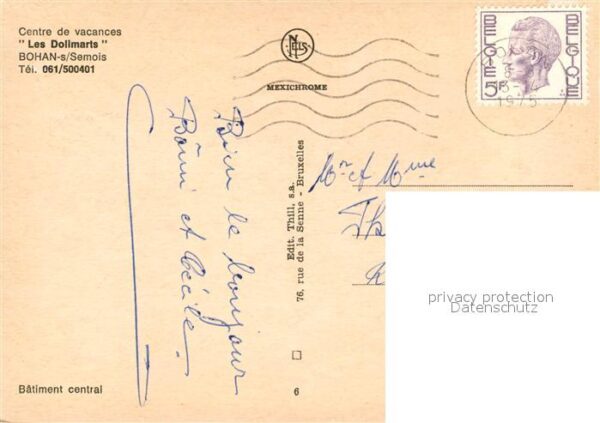 Centre de vacances
"Les Dolimarts"
BOHAN-s/Semois
Tél. 061/500401
NELS
MEXICHROME
BELGIE BELGIQUE
5F
1975
Bien le bonjour
et Cécile
Edit. Thill, s.a.
76, rue de la Senne - Bruxelles
Mr et Mme
privacy protection
Datenschutz
Bâtiment central
6